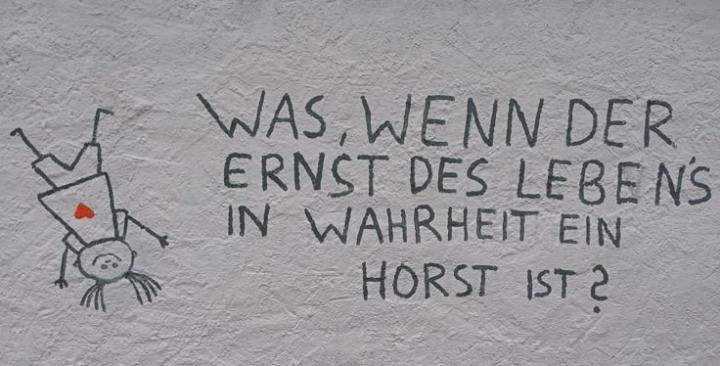 WAS, WENN DER
ERNST DES LEBEN'S
IN WAHRHEIT EIN
HORST IST?